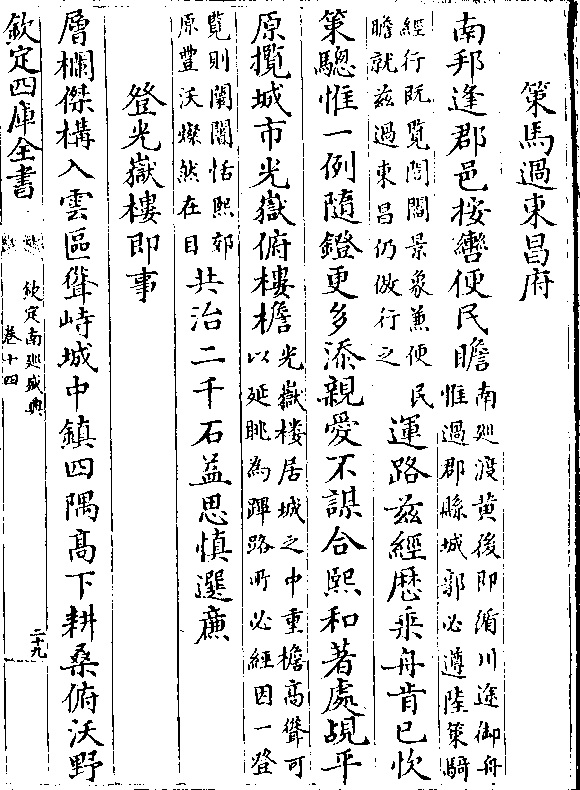 策馬過東昌府
南邦逢郡邑按轡便民瞻
南廵渡黃後即循川途御舟
惟過郡縣城郭必遵陸策騎
經行既覽閭閻景象兼便民
瞻就茲過東昌仍倣行之
運路茲經歷乘舟肯已忺
策驄惟一例隨鐙更多添親愛不謀合熙和著處覘平
原攬城市光嶽俯樓檐
光嶽樓居城之中重檐高聳可
以延眺為蹕路所必經因一登
覽則闤闠恬熙郊
原豐沃燦然在目
共治二千石益思慎選亷
登光嶽樓即事
層欄傑構入雲區聳峙城中鎮四隅高下耕桑俯沃野
欽定四庫全書
欽定南廵盛典
卷十四
二十九